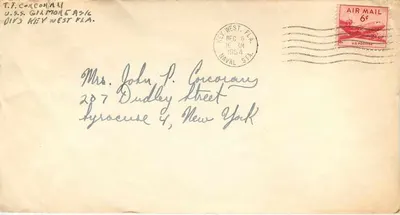 T.F. CORCORAN
U.S.S. GILMORE AS16
DIV3 KEY WEST FLA.
KEY WEST, FLA.
1954
NAVAL STA.
AIR MAIL
6¢
Mrs. John P. Corcoran
207 Dudley Street
Syracuse 4, New York